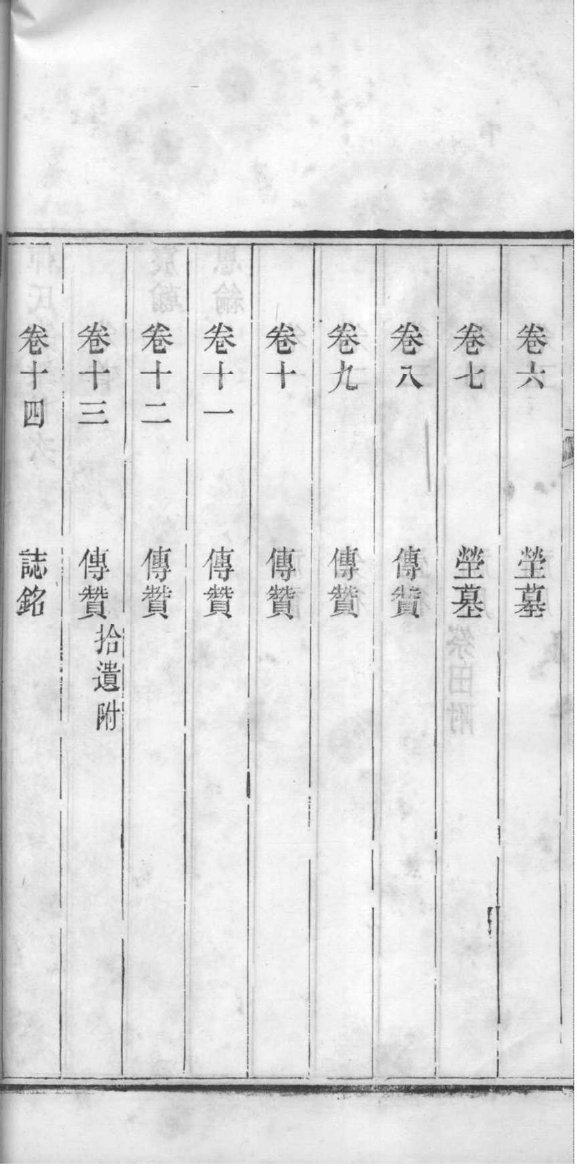 卷六 塋墓
卷七 塋墓
卷八 傳贊
卷九 傳贊
卷十 傳贊
卷十一 傳贊
卷十二 傳贊
卷十三 傳贊 拾遺附
卷十四 誌銘